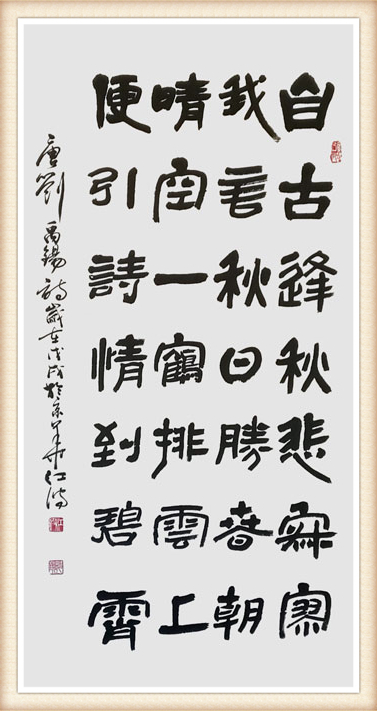 自古逢秋悲寂寥
我言秋日勝春朝
晴空一鶴排雲上
便引詩情到碧霄
唐劉禹錫詩歲在戊戌於京